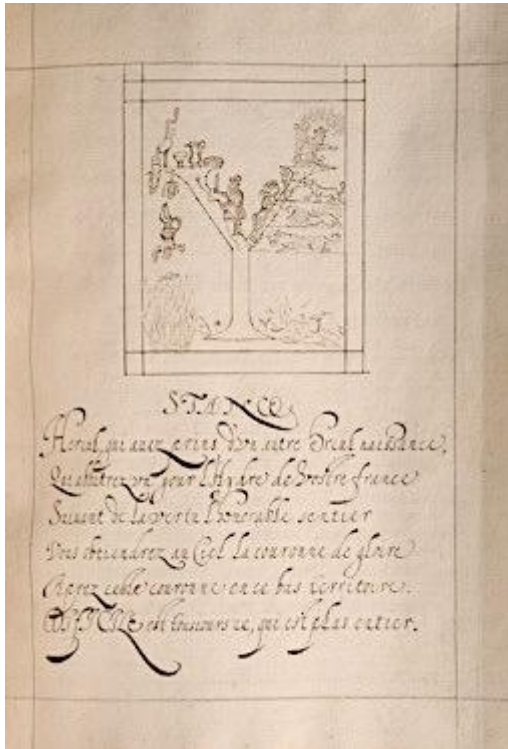 STANCE
Hercul, qui avez prins d'un autre Hercul naissance,
Qui abbatrez un jour l'Hydre de vostre france
Suivant de la vertu l'honorable sentier
Vous obtiendrez au Ciel la couronne de gloire
Aiant ceste couronne en ce bas territoire.
est tousiours ce, qui est plus entier.